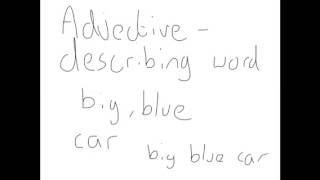 Adjective -
describing word
big, blue
car
big blue car